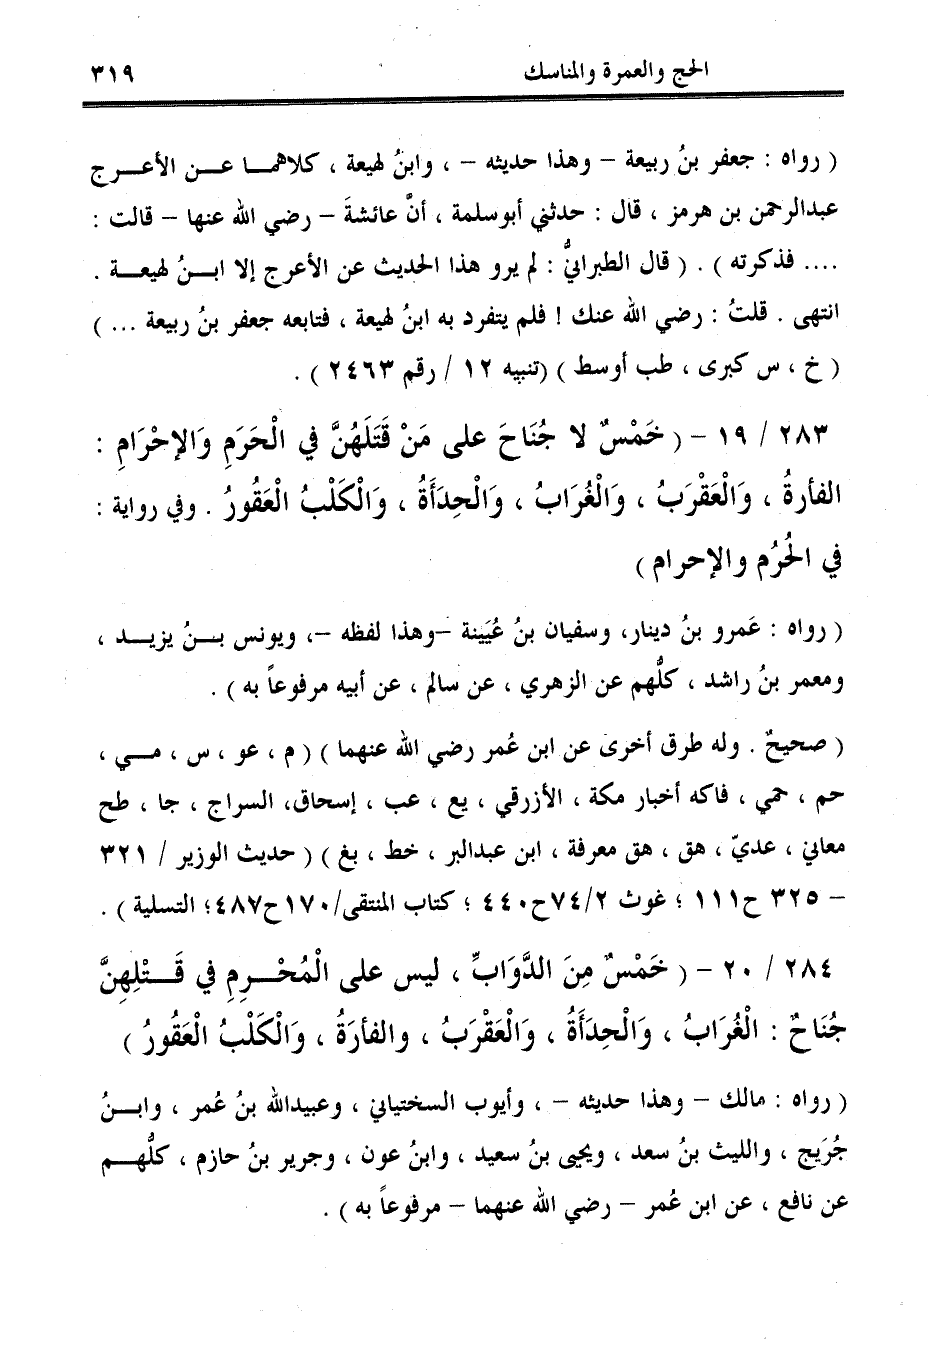 الحج والعمرة والمناسك ٣١٩
( رواه : جعفر بنُ ربيعة – وهذا حديثه – ، وابنُ لهيعة ، كلاهما عن الأعرج
عبدالرحمن بن هرمز ، قال : حدثني أبوسلمة ، أنَّ عائشةَ – رضي الله عنها – قالت :
.... فذكرته ) . ( قال الطبرانيُّ : لم يرو هذا الحديث عن الأعرج إلا ابنُ لهيعة .
انتهى . قلتُ : رضي الله عنك ! فلم يتفرد به ابنُ لهيعة ، فتابعه جعفر بنُ ربيعة ... )
( خ ، س كبرى ، طب أوسط ) (تنبيه ١٢ / رقم ٢٤٦٣ ) .
٢٨٣ / ١٩ – ( خَمْسٌ لا جُنَاحَ على مَنْ قَتَلَهُنَّ في الْحَرَمِ وَالإحْرَامِ :
الفأرةُ ، وَالْعَقْرَبُ ، وَالْغُرَابُ ، وَالْحِدَأَةُ ، وَالْكَلْبُ الْعَقُورُ . وفي رواية :
في الحُرُم والإحرام )
( رواه : عَمرو بنُ دينار، وسفيان بنُ عُيَينة –وهذا لفظه –، ويونس بنُ يزيد ،
ومعمر بنُ راشد ، كلُّهم عن الزهري ، عن سالم ، عن أبيه مرفوعاً به ) .
( صحيحٌ . وله طرق أخرى عن ابن عُمر رضي الله عنهما ) ( م ، عو ، س ، مي ،
حم ، حمي ، فاكه أخبار مكة ، الأزرقي ، يع ، عب ، إسحاق، السراج ، جا ، طح
معاني ، عديّ ، هق ، هق معرفة ، ابن عبدالبر ، خط ، بغ ) ( حديث الوزير / ٣٢١
– ٣٢٥ ح١١١ ؛ غوث ٧٤/٢ح٤٤٠ ؛ كتاب المنتقى/١٧٠ح٤٨٧؛ التسلية ) .
٢٨٤ / ٢٠ – ( خَمْسٌ مِنَ الدَّوَابِّ ، ليس على الْمُحْرِمِ في قَتْلِهِنَّ
جُنَاحٌ : الْغُرَابُ ، وَالْحِدَأَةُ ، وَالْعَقْرَبُ ، والفأرَةُ ، وَالْكَلْبُ الْعَقُورُ )
( رواه : مالك – وهذا حديثه – ، وأيوب السختياني ، وعبيدالله بنُ عُمر ، وابنُ
جُرَيج ، والليث بنُ سعد ، ويحيى بنُ سعيد ، وابنُ عون ، وجرير بنُ حازم ، كلُّهم
عن نافع ، عن ابن عُمر – رضي الله عنهما – مرفوعاً به ) .